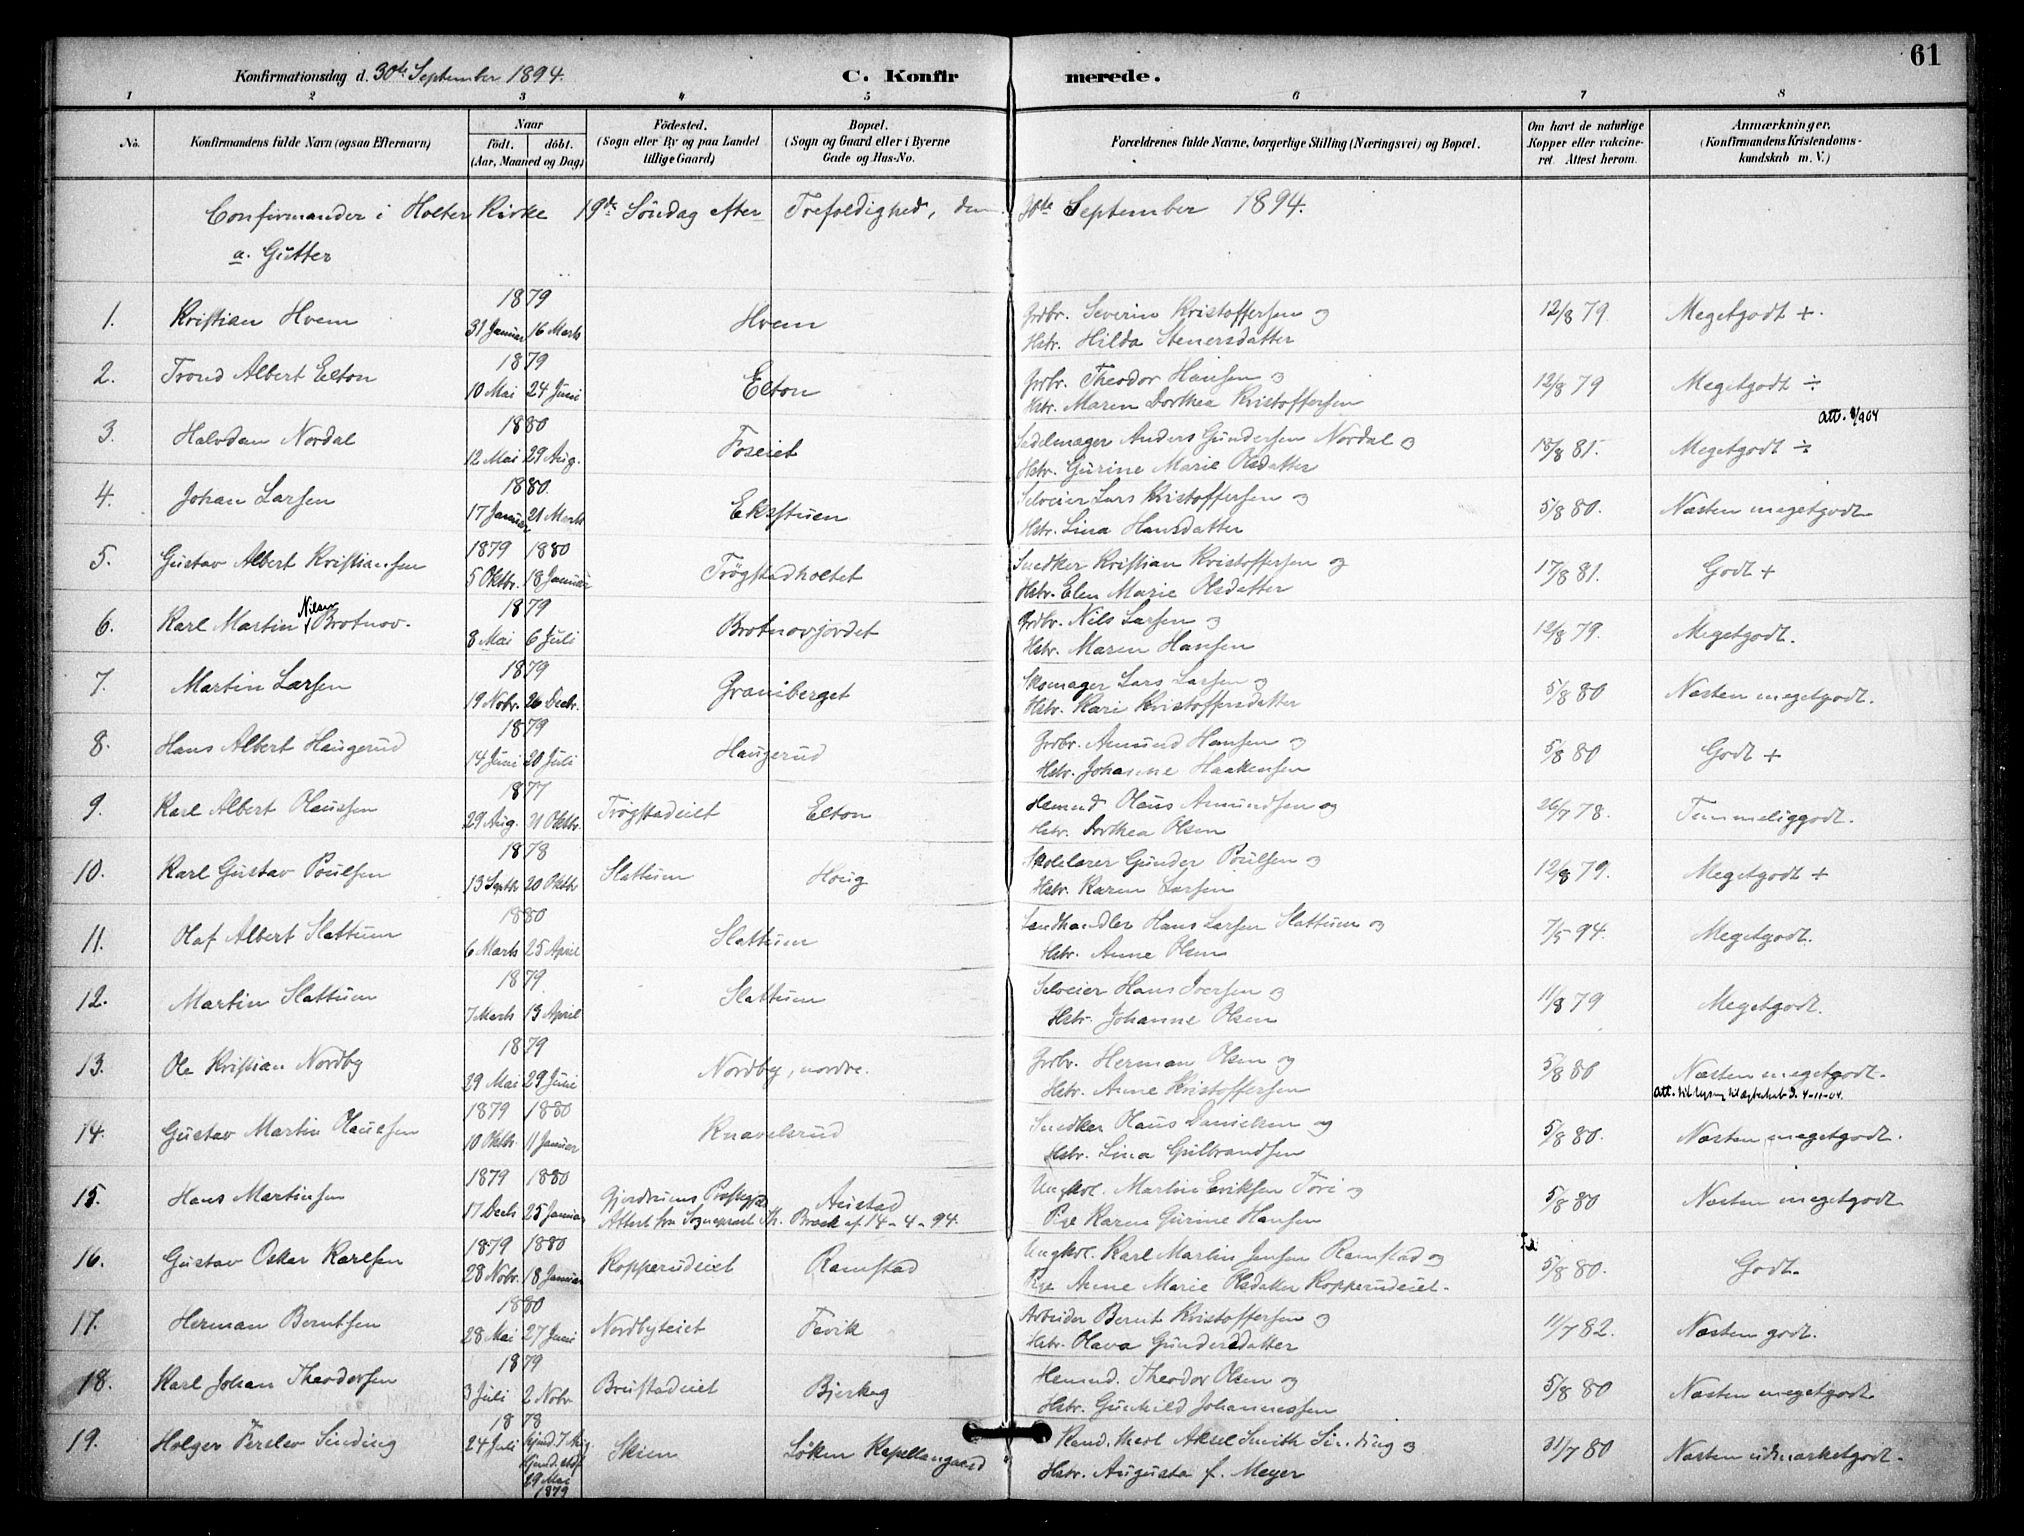 61
Konfirmationsdag d. 30de September 1894.
C. Konfir merede.
1 2 3 4 5 6 7 8
No. Konfirmandens fulde Navn (ogsaa Efternavn) Naar födt. döbt. (Aar, Maaned og Dag) Födested. (Sogn eller By og paa Landet tillige Gaard) Bopæl. (Sogn og Gaard eller i Byerne Gade og Hus-No. Forældrenes fulde Navne, borgerlige Stilling (Næringsvei) og Bopæl. Om havt de naturlige Kopper eller vakcineret. Attest herom. Anmærkninger. (Konfirmandens Kristendomskundskab m. V.)
Confirmander i Holter Kirke 19de Söndag efter Trefoldighed, den 30te September 1894.
a. Gutter
1. Kristian Hvem 1879 31 Januar 16 Marts Hvem Grdbr. Severin Kristoffersen og 12/8 79. Megetgodt +.
Hstr. Hilda Stenersdatter
2. Trond Albert Elton 1879 10 Mai 24 Juni Elton Grdbr. Theodor Hansen og 12/8 79 Megetgodt ÷
Hstr. Maren Dorthea Kristoffersen
3. Halvdan Nordal 1880 12 Mai 29 Aug. Foseiet Sadelmager Anders Gundersen Nordal og 18/8 81. Megetgodt ÷
Hstr. Gurine Marie Olsdatter
4. Johan Larsen 1880. 17 Januar 21 Marts Ekstuen Selveier Lars Kristoffersen og 5/8 80. Næsten megetgodt.
Hstr. Lina Hansdatter
5. Gustav Albert Kristiansen 1879 1880 5 Oktbr. 18 Januar Trögstadholtet Snedker Kristian Kristoffersen og 17/8 81. Godt +
Hstr. Elen Marie Olsdatter
6. Karl Martin Nilsen Brotnov. 1879 8 Mai 6 Juli Brotnovjordet Grdbr. Nils Larsen og 12/8 79. Megetgodt.
Hstr. Maren Hansen
7. Martin Larsen 1879 19 Novbr. 26 Decbr. Graniberget Skomager Lars Larsen og 5/8 80 Næsten megetgodt.
Hstr. Kari Kristoffersdatter
8. Hans Albert Haugerud 1879 14 Juni 20 Juli Haugerud Grdbr. Amund Hansen og 5/8 80 Godt +
Hstr. Johanne Haakensen
9. Karl Albert Olaussen 1877 29 Aug. 21 Oktbr. Trögstadeiet Elton Hemnd Olaus Amundsen og 26/7 78. Temmeliggodt.
Hstr. Dorthea Olsen
10. Karl Gustav Poulsen 1878 13 Septbr 20 Oktbr Slattum Houg Skolelærer Gunder Poulsen og 12/8 79. Megetgodt +
Hstr. Karen Larsen
11. Olaf Albert Slattum 1880 6 Marts 25 April Slattum Landhandler Hans Larsen Slattum og 7/5 94. Megetgodt.
Hstr. Anne Olsen
12. Martin Slattum 1879. 7 Marts 13 April Slattum Selveier Hans Iversen og 11/8 79 Megetgodt.
Hstr. Johanne Olsen
13. Ole Kristian Nordby 1879 29 Mai 29 Juni Nordby, nordre. Grdbr. Herman Olsen og 5/8 80 Næsten megetgodt.
Hstr. Anne Kristoffersen
14. Gustav Martin Olaussen 1879 1880 10 Oktbr. 11 Januar Knavelsrud Snedker Olaus Danielsen og 5/8 80. Næsten megetgodt.
Hstr. Lina Gulbrandsen
15. Hans Martinsen 1879 1880 17 Decbr 25 Januar Gjerdrums Præstegjeld Austad Ungkrl. Martin Eriksen Tori og 5/8 80 Næsten megetgodt
Attest fra Sognepræst Th. Brock af 14-4-94. Pige Karen Gurine Hansen
16. Gustav Oskar Karlsen 1879 1880 28 Novbr. 18 Januar Kopperudeiet Ramstad Ungkrl. Karl Martin Jensen Ramstad og 5/8 80. Godt.
Pige Anne Marie Olsdatter Kopperudeiet.
17. Herman Berntsen 1880 28 Mai 27 Juni Nordbyteiet Fevik Arbeider Bernt Kristoffersen og 11/7 82. Næsten godt.
Hstr. Olava Gundersdatter
18. Karl Johan Theodorsen 1879 3 Juli 2 Novbr Brustadeiet Bjerkeg Hemnd. Theodor Olsen og 5/8 80 Næsten megetgodt
Hstr. Gunhild Johannessen
19. Holger Fersleo Sinding 1878 24 Juli 29 Mai 1879 Skien Löken Kapellangaard Kand. theol Aksel Smith Sinding og 31/7 80 Næsten udmærketgodt.
Hstr. Augusta f. Meyer